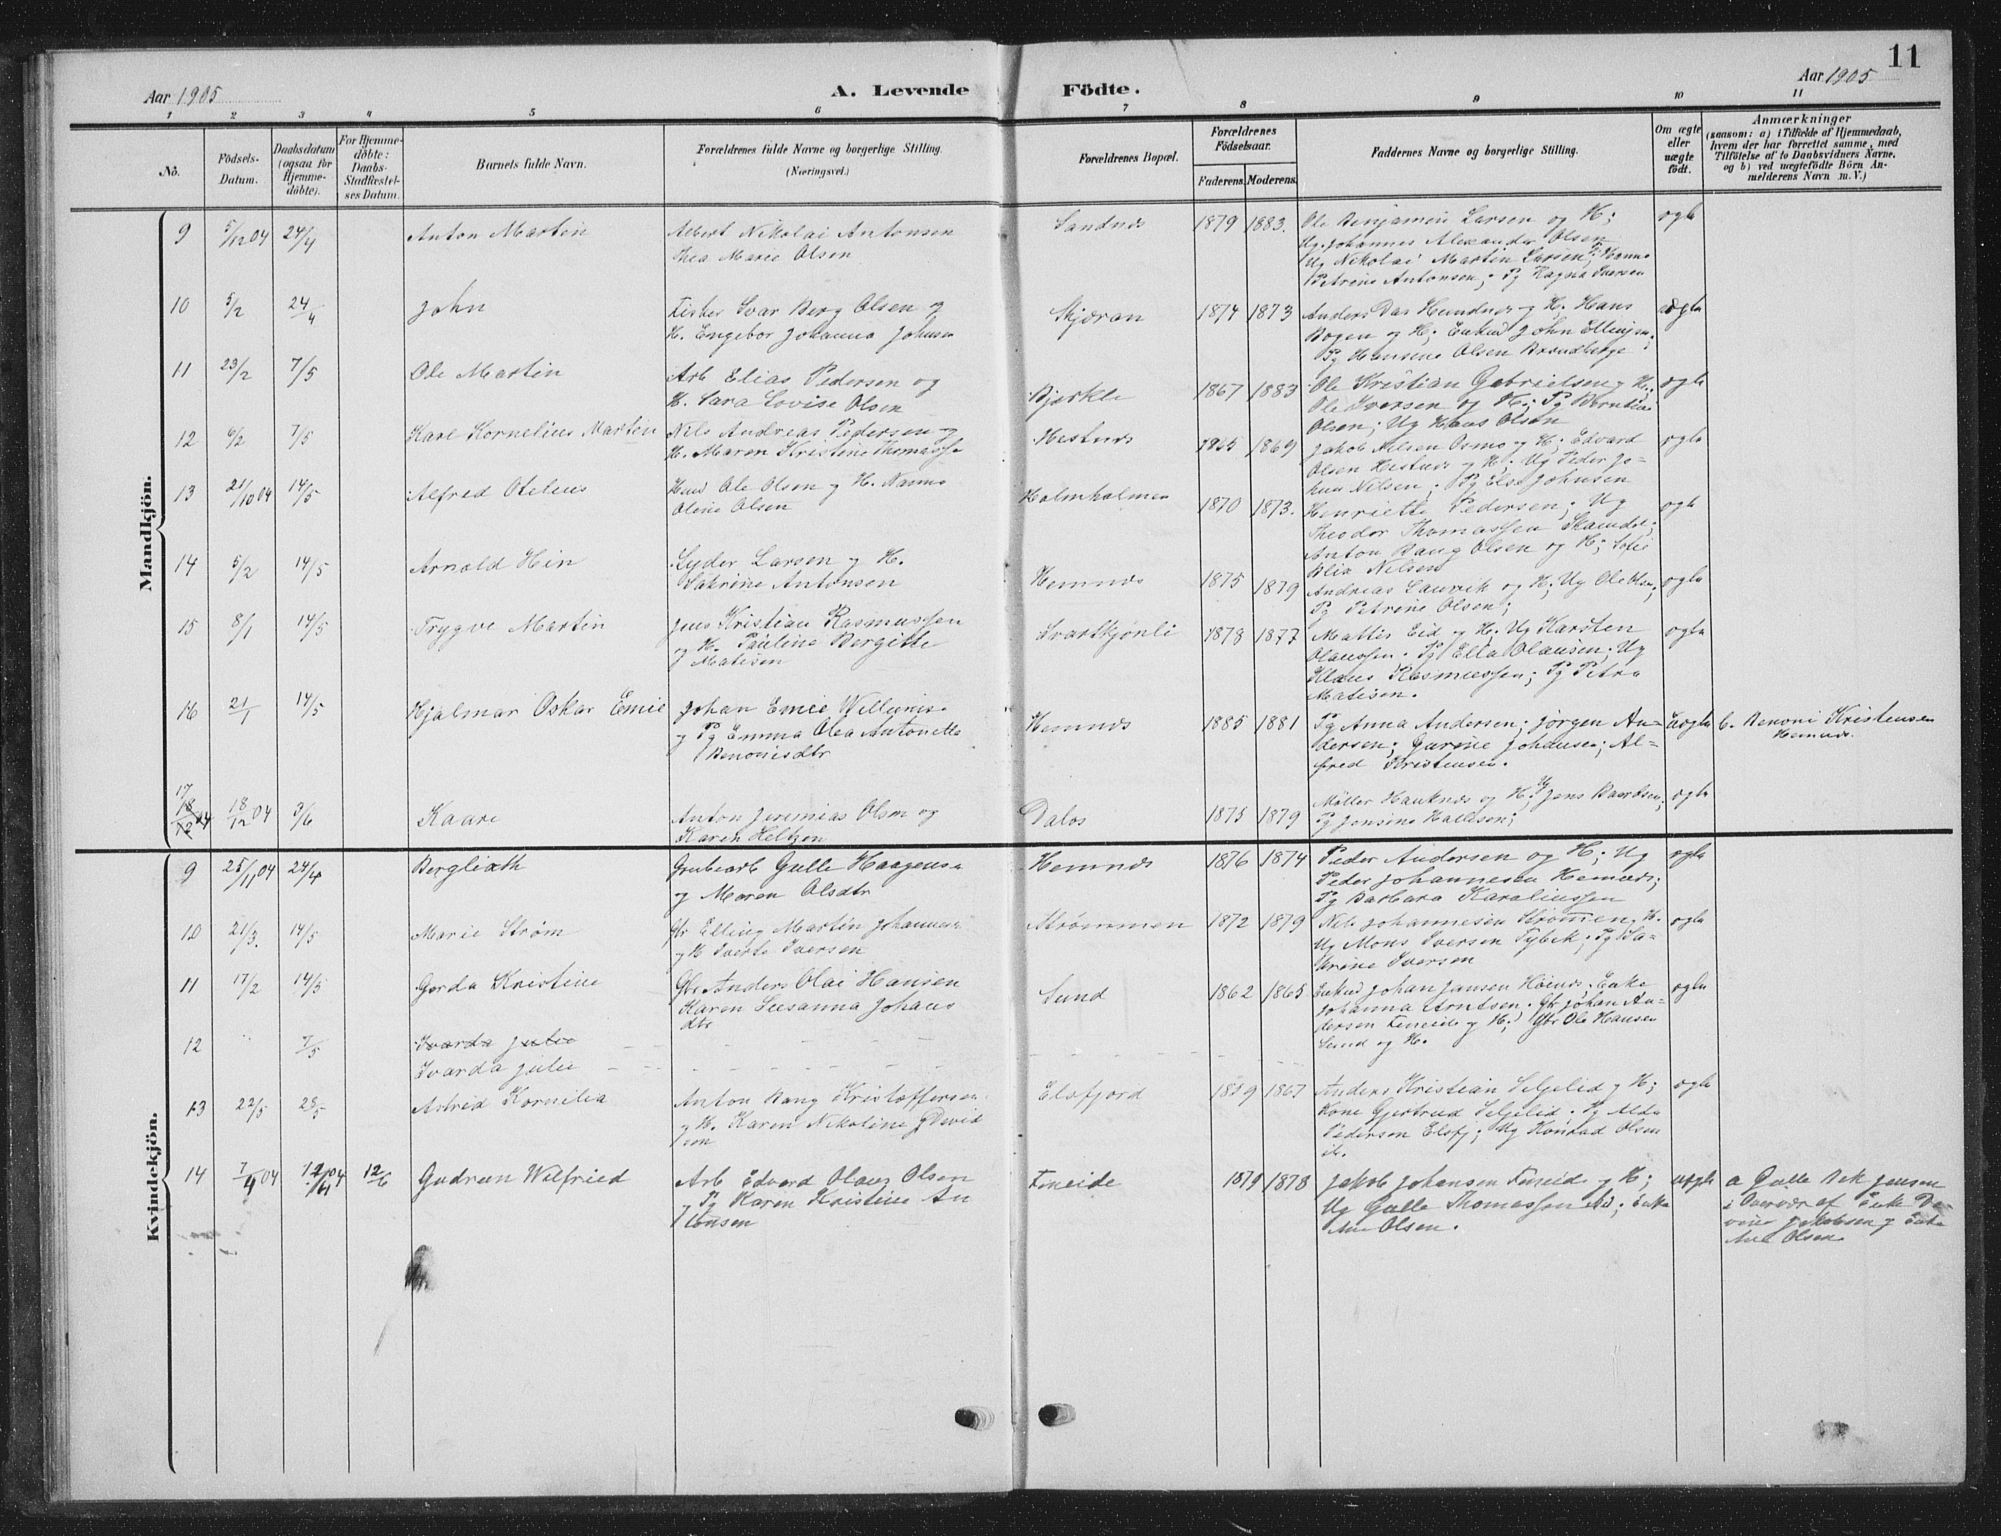 11
Aar 1905
A. Levende
Födte.
Aar 1905
1 2 3 4 5 6 7 8 9 10 11
No.
Födsels-
Datum.
Daabsdatum
(ogsaa for
Hjemme-
döbte).
For Hjemme-
döbte:
Daabs-
Stadfæstel-
ses Datum.
Barnets fulde Navn.
Forældrenes fulde Navne og borgerlige Stilling.
(Næringsvei.)
Forældrenes Bopæl.
Forældrenes
Födselsaar.
Faderens. Moderens.
Faddernes Navne og borgerlige Stilling.
Om ægte
eller
uægte
födt.
Anmærkninger
(saasom: a) i Tilfælde af Hjemmedaab,
hvem der har forrettet samme, med
Tilföielse af to Daabsvidners Navne,
og b) ved uægtefödte Börn An-
melderens Navn m. V.)
Mandkjön.
9 5/12 04 24/4 Anton Martin
Albert Nikolai Antonsen
Thea Marie Olsen
Sandnes 1879 1883.
Ole Benjamin Larsen og H;
Ug. Johannes Alexander Olsen
Ug Nikolai Martin Larsen;
Petrine Antonsen; Pg Ragna Iversen
ægte
10 5/2 24/4 John
Fisker Ivar Berg Olsen og
H. Engebor Johanna Johnsen
Skjæran 1874 1873
H. Hans
Bogen og H; John Ellingsen
Pg Hansine Olsen
ægte
11 23/2 7/5 Ole Martin
Arb Elias Pedersen og
H. Sara Lovise Olsen
Bjerkle 1867 1883
Ole Kristian Gabrielsen og H;
Ole Iversen og H; Pg
Olsen; Ug Hans Olsen
ægte
12 6/2 7/5 Karl Kornelius Martin
Nils Andreas Pedersen og
H. Maren Kristine Thomassen
Hestnes 1865 1869
Jakob Nilsen og H; Edvard
Olsen Hestnes og H; Ug Peder Jo-
Nilsen; Pg Else Johnsen
ægte
13 21/10 04 14/5 Alfred Otelius
Ole Olsen og H. Nanna
Oline Olsen
Holmholmen 1870 1873.
Henriette Pedersen; Ug
Theodor Thomassen
Anton Bang Olsen og H; Sofie
Blix Nilsen
ægte
14 5/2 14/5 Arnold Hein
Lyder Larsen og H.
Sakrine Antonsen
Hemnes 1875 1879
Andreas Laurvik og H; Ug Ole Olsen;
Pg Petrine Olsen;
ægte
15 8/1 14/5 Trygve Martin
Jens Kristian Rasmussen
og H. Pauline Bergitte
Matisen
Svartkjønli 1878 1877
Mattis Eid og H; Ug Karsten
Olaussen. Pg Ella Olausen; Ug
Klaus Rasmussen; Pg Petra
Matisen.
ægte
16 21/1 14/5 Hjalmar Oskar Emil
Johan Emil
og Pg Emma Olea Antonette
Benonisdtr
Hemnes 1885 1881
Pg Anna Andersen; Jørgen An-
dersen; Gurine Johansen; Al-
fred Kristensen.
Uægte
b. Benoni Kristensen
Hemnes.
17
18/12 04 18/12 04 3/6 Kaare
Anton Jeremias Olsen og
Karen Heltzen
Dalos 1875 1879
Møller Hauknes og H; Ug Jens Baardsen;
Pg Jonsine
ægte
Kvindekjön.
9 25/11 04 24/4 Bergliath
Grubearb Gulle Haagensen
og Maren Olsdtr
Hemnes 1876 1874
Peder Andersen og H; Ug
Peder Johannesen Hemnes;
Pg Barbara Karoliussen
ægte
10 21/3. 14/5 Marie Strøm
Gbr Elling Martin Johannesen
og H Iverte Iversen
Strømmen 1872 1879
Nils Johannesen Strømen, H.
Ug Mons Iversen Tybek; Pg
Iversen
ægte
11 17/2 14/5 Gerda Kristine
Gbr Anders Olai Hansen
Karen Susanna Johans
dtr
Sund 1862 1865
Johan Jansen; Enke
Johanna Arntsen. Gbr Johan An-
dersen Fineide og H; Gbr Ole Hansen
Sund og H.
ægte
12 " 7/5 Ivarda Julie
Ivarda Julie
13 22/5 28/5 Astrid Kornelia
Anton Bang Kristoffersen
og H. Karen Nikoline David
sen
Elsfjord 1869 1867
Anders Kristian Seljelid og H;
Kone Gjertrud Seljelid. Pg Alda
Pedersen Elsfj; Ug Konrad Olsen
ib.
ægte
14 7/9 04 04 12/6 Gudrun Wilfried
Arb Edvard Olaus Olsen
og Pg Karen Kristine An
tonsen
Fineide 1879 1878
Jakob Johansen Fineide og H;
Ug Gulle Thomassen ; Enke
Ane Olsen.
uægte
a Gulle Bek Jensen
i Overvær af Enke
Jakobsen og Enke
Ane Olsen